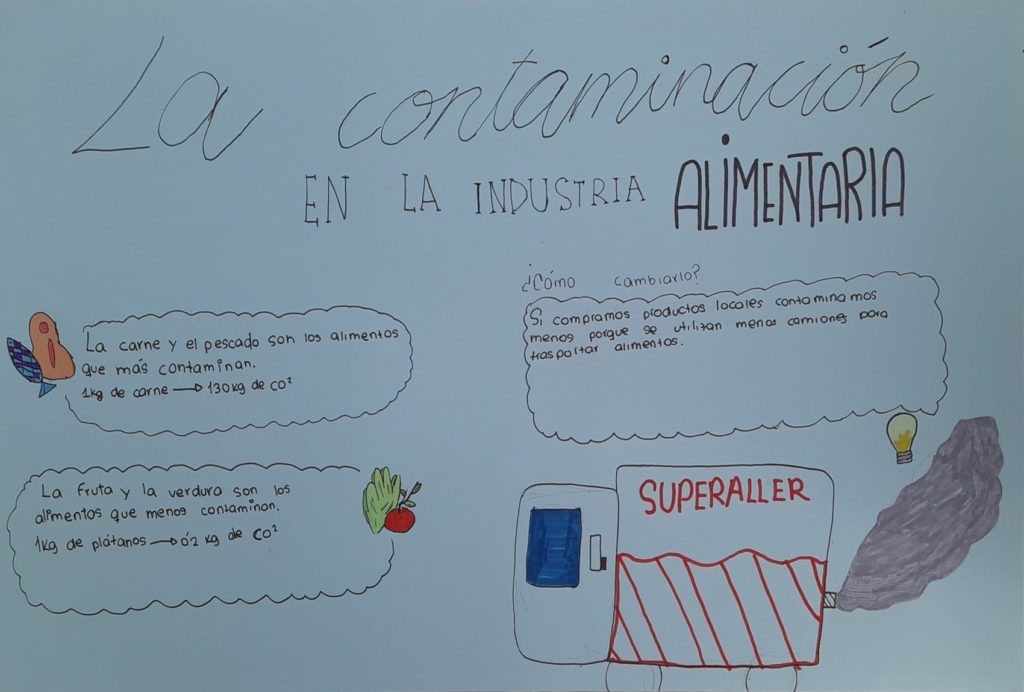 La contaminación
EN LA INDUSTRIA ALIMENTARIA
La carne y el pescado son los alimentos
que más contaminan.
1kg de carne → 130kg de CO²
La fruta y la verdura son los
alimentos que menos contaminan.
1kg de plátanos → 0'2 kg de CO²
¿Cómo cambiarlo?
Si compramos productos locales contaminamos
menos porque se utilizan menos camiones para
trasportar alimentos.
SUPERALLER